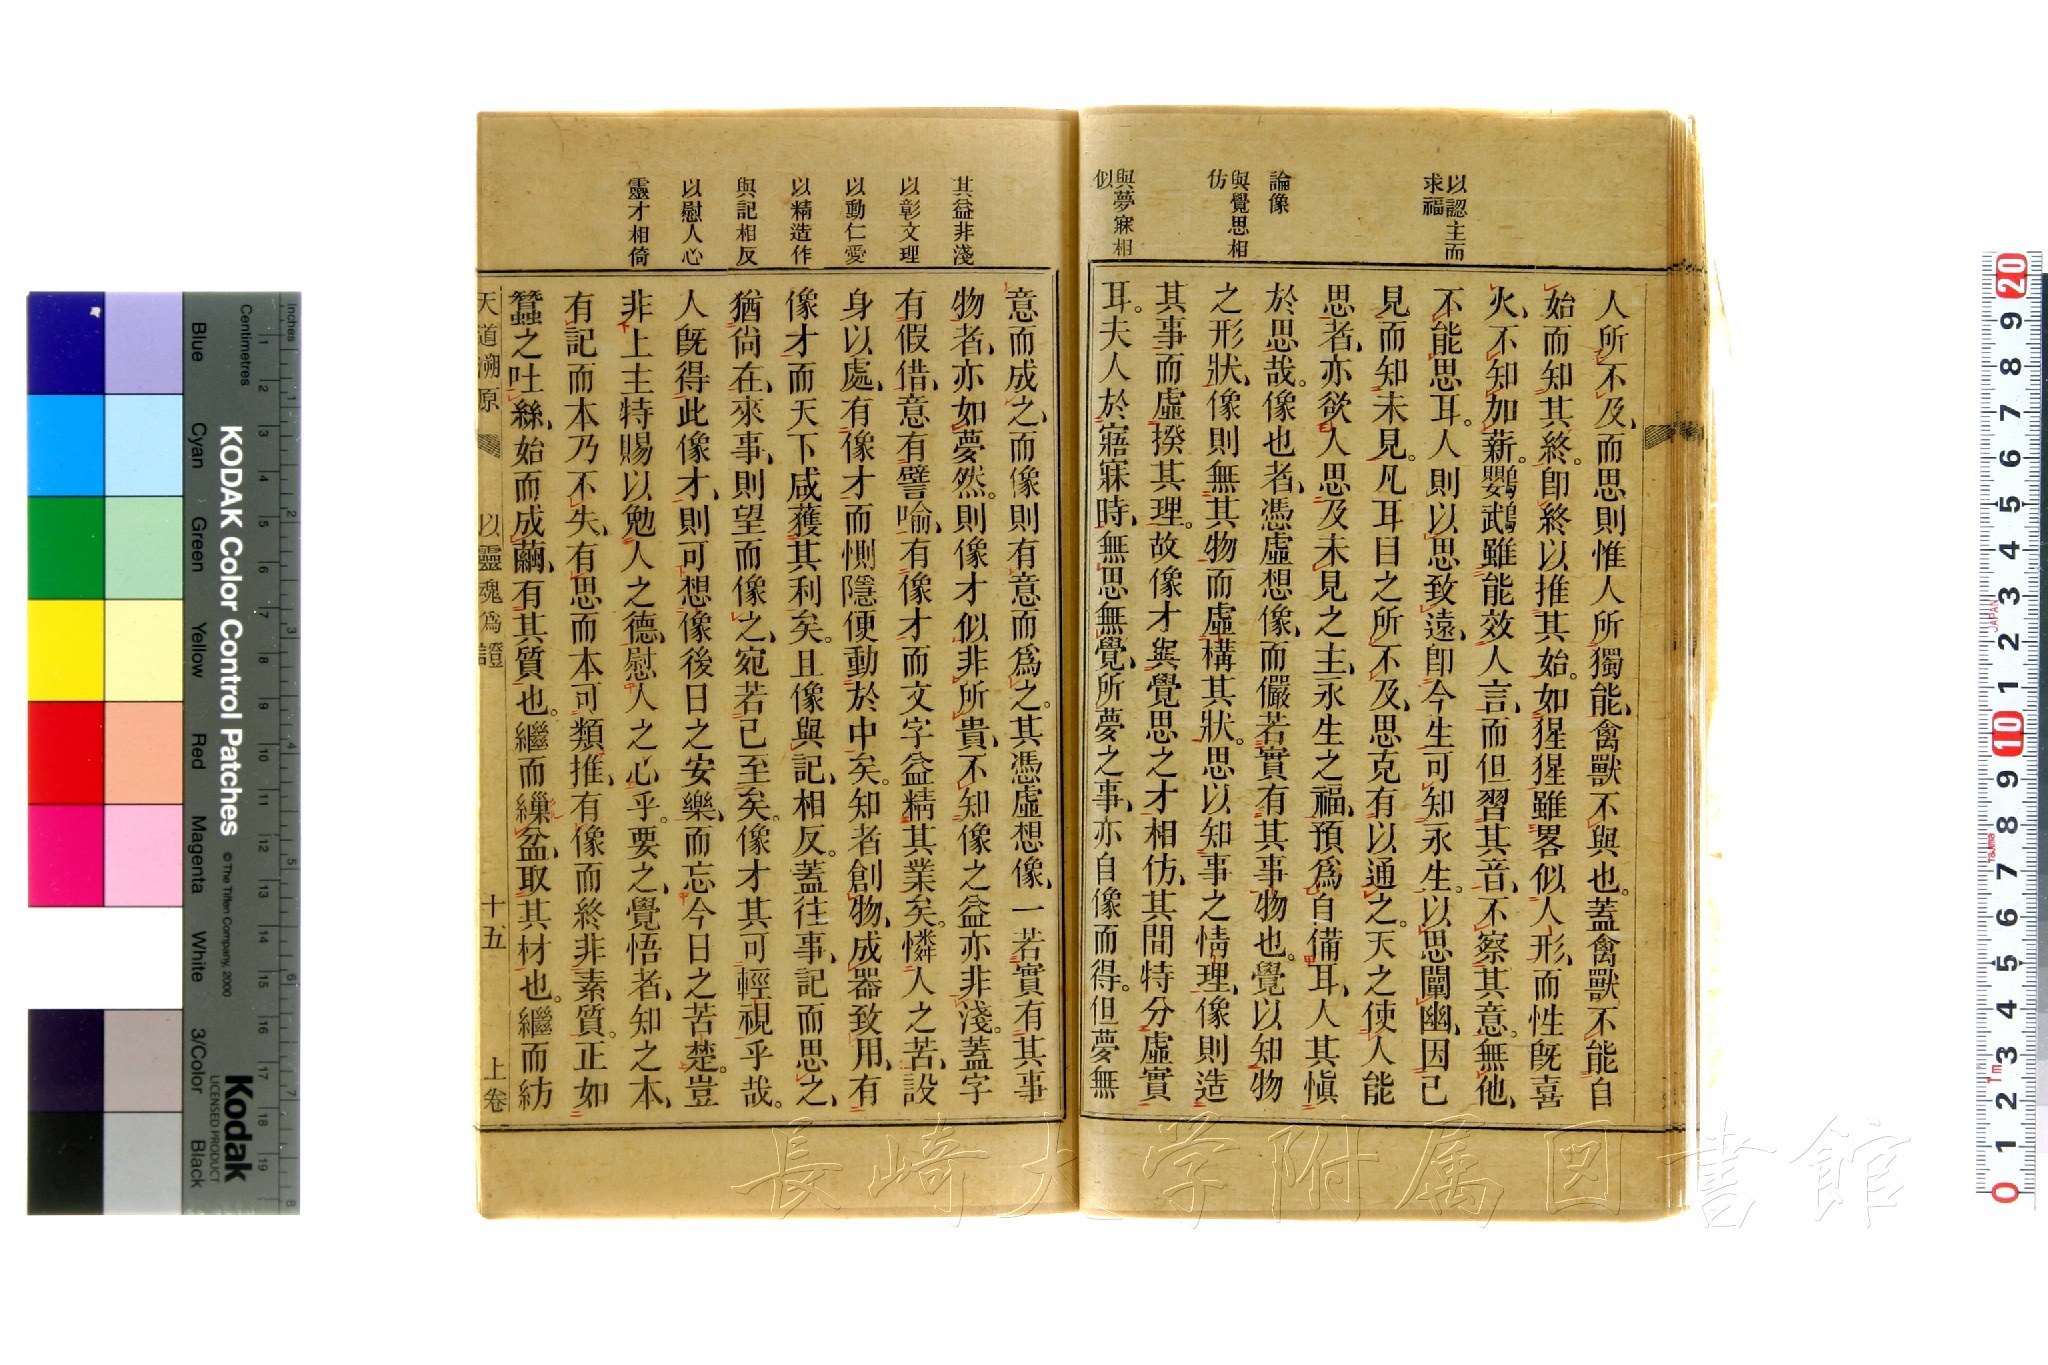 以認主而
求福
論像
與覺思相
仿
與夢寐相
似
人所不及、而思則惟人所獨能、禽獸不與也。蓋禽獸不能自
始而知其終。卽終以推其始。如猩猩雖畧似人形、而性旣喜
火、不知加薪。鸚鵡雖能效人言、而但習其音、不察其意。無他、
不能思耳。人則以思致遠、卽今生可知永生。以思闡幽、因已
見而知未見。凡耳目之所不及、思克有以通之。天之使人能
思者、亦欲人思及未見之主、永生之福、預爲自備耳、人其愼
於思哉。像也者、憑虛想像、而儼若實有其事物也。覺以知物
之形狀、像則無其物而虛構其狀。思以知事之情理、像則造
其事而虛揆其理。故像才與覺思之才相仿、其間特分虛實
耳。夫人於寤寐時、無思無覺、所夢之事、亦自像而得。但夢無
其益非淺
以彰文理
以動仁愛
以精造作
與記相反
以慰人心
靈才相倚
意而成之、而像則有意而爲之。其憑虛想像、一若實有其事
物者、亦如夢然。則像才似非所貴、不知像之益亦非淺。蓋字
有假借、意有譬喻、有像才而文字益精其業矣。憐人之苦、設
身以處、有像才而惻隱便動於中矣。知者創物、成器致用、有
像才而天下咸獲其利矣。且像與記、相反。蓋往事、記而思之、
猶尙在、來事、則望而像之、宛若己至矣。像才其可輕視乎哉。
人旣得此像才、則可想像後日之安樂、而忘今日之苦楚。豈
非上主特賜以勉人之德、慰人之心乎。要之、覺悟者、知之本、
有記而本乃不失、有思而本可類推、有像而終非素質。正如
蠶之吐絲、始而成繭、有其質也。繼而繅盆、取其材也。繼而紡
天道溯原 以靈魂爲證 十五 上卷
Inches
Centimetres
KODAK Color Control Patches
© The Tiffen Company, 2000
Blue Cyan Green Yellow Red Magenta White 3/Color Black
Kodak
LICENSED PRODUCT
長崎大学附属図書館